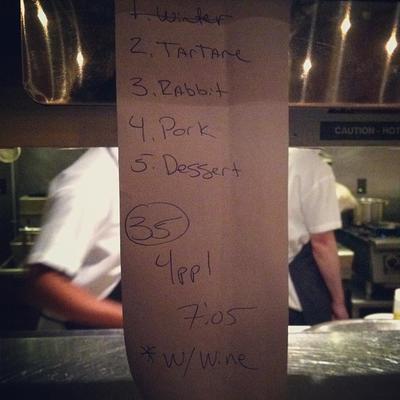 1. Winter
2. Tartare
3. Rabbit
4. Pork
5. Dessert
35
4ppl
7:05
* w/ Wine
CAUTION - HOT